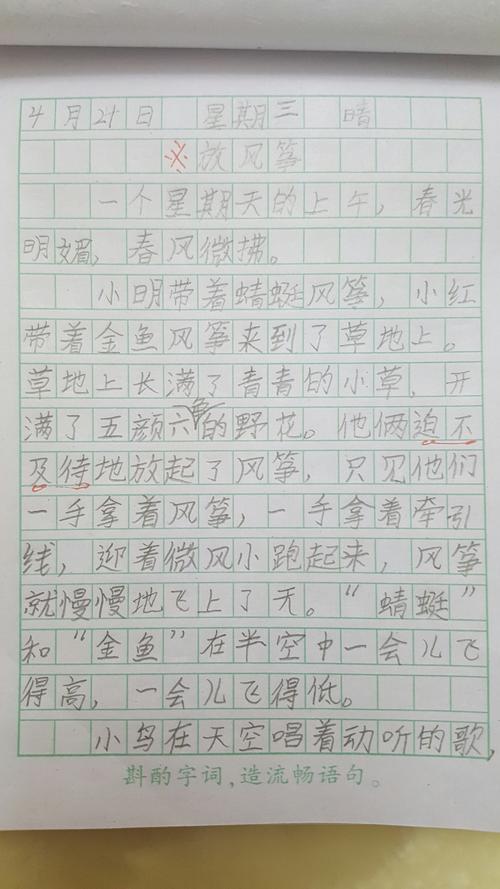 4月21日 星期三 晴
※放风筝
一个星期天的上午，春光
明媚，春风微拂。
小明带着蜻蜓风筝，小红
带着金鱼风筝来到了草地上。
草地上长满了青青的小草，开
满了五颜六色的野花。他俩迫不
及待地放起了风筝，只见他们
一手拿着风筝，一手拿着牵引
线，迎着微风小跑起来，风筝
就慢慢慢地飞上了天。“蜻蜓”
和“金鱼”在半空中一会儿飞
得高，一会儿飞得低。
小鸟在天空唱着动听的歌，
斟酌字词，造流畅语句。